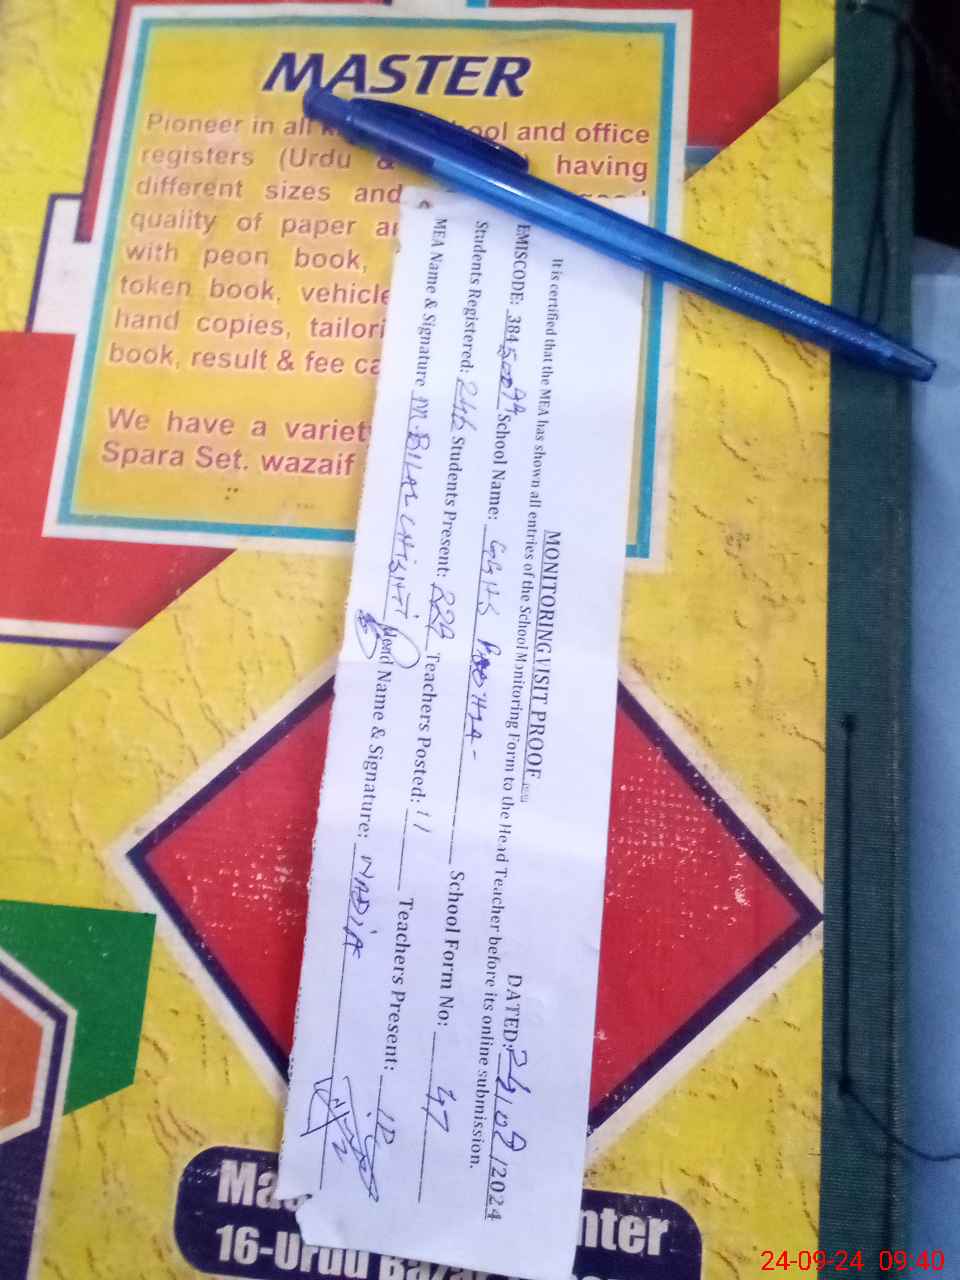 MASTER
Pioneer in all and office
registers (Urdu & having
different sizes and
quality of paper
with peon book,
token book, vehicle
hand copies,
book, result & fee
We have a
Spara Set. wazaif
MONITORING VISIT PROOF
DATED: 24/09/2024
It is certified that the MEA has shown all entries of the School Monitoring Form to the Head Teacher before its online submission.
EMISCODE: School Name: GGHS School Form No: 47
Students Registered: 246 Students Present: Teachers Posted: 11 Teachers Present: 10
MEA Name & Signature M. BILAL CHISHTI Head Name & Signature: NADIA
16-Urdu
24-09-24 09:40